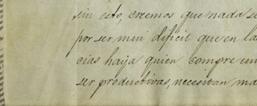 sin esto, creemos que nada se
por ser mui dificil que en la
cias haija quien compre un
ser productivas, necesitan ma